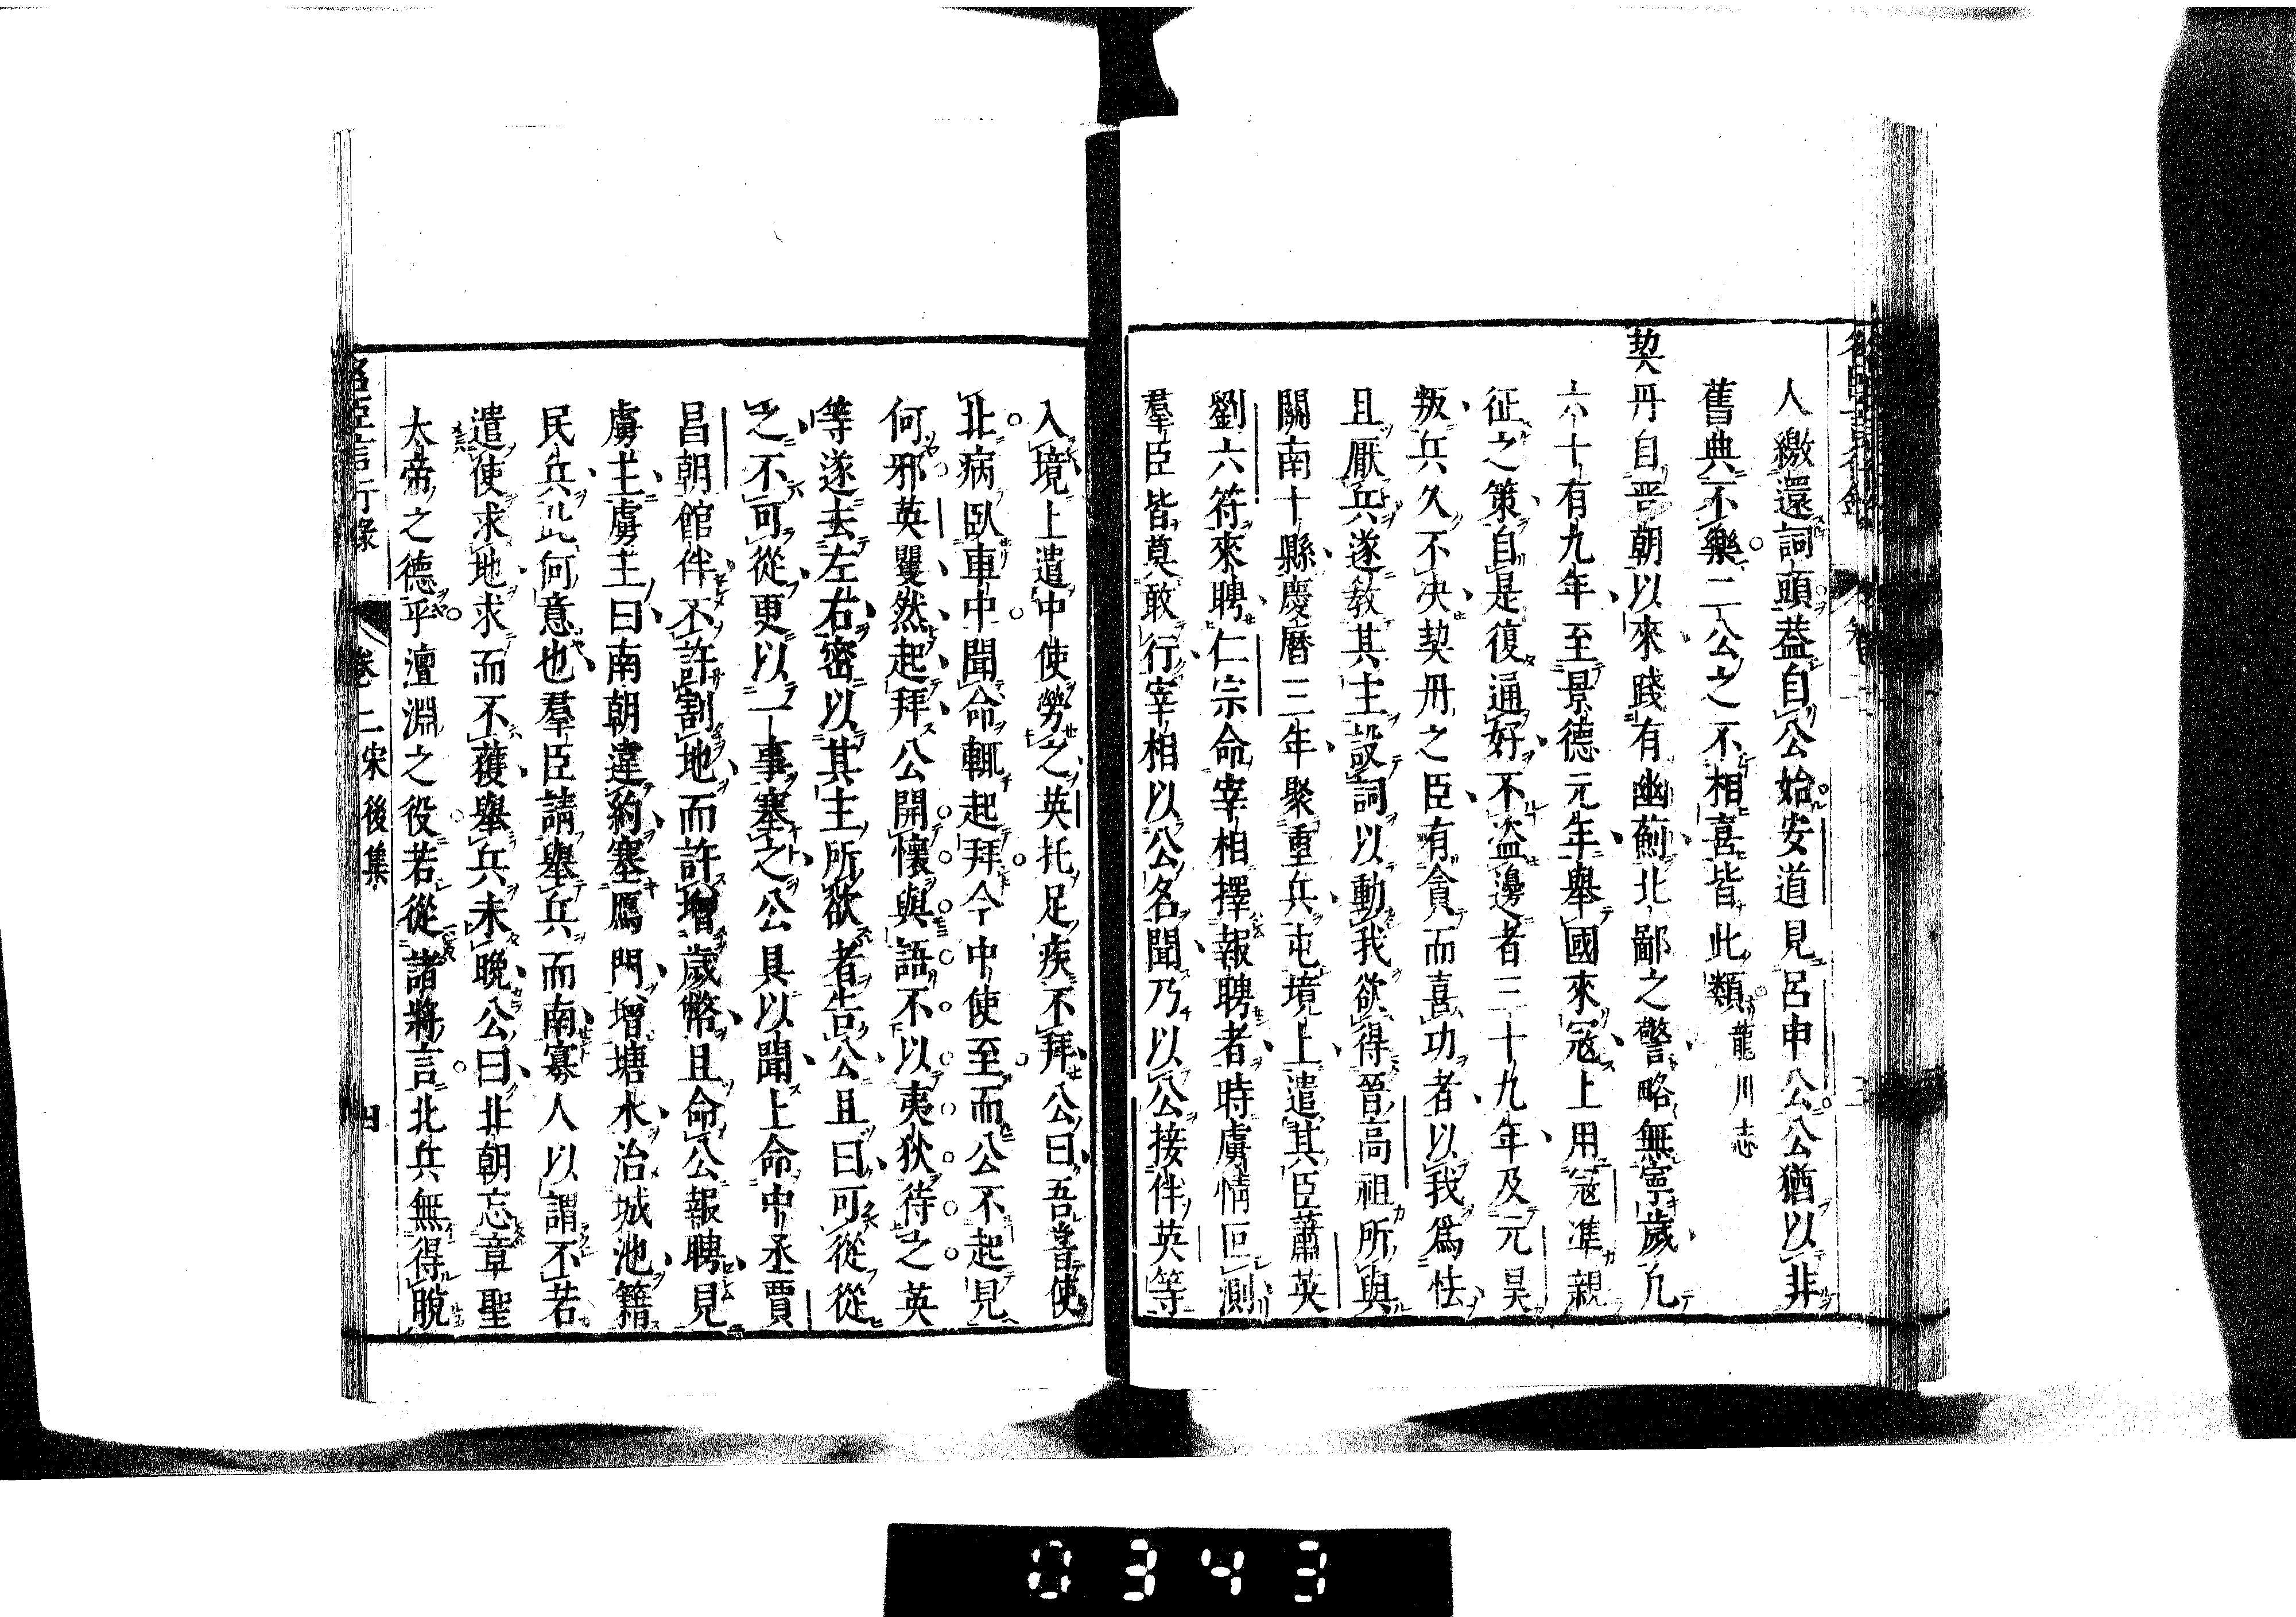 人繳還詞頭葢自公始安道見呂申公公猶以非
舊典不樂二公之不相喜皆此類龍川志
契丹自晋朝以來踐有幽薊北鄙之警略無寧歲凡
六十有九年至景德元年舉國來冦上用冦準親
征之策自是復通好不盗邊者三十九年及元昊
叛兵久不决契丹之臣有貪而喜功者以我爲怯
且厭兵遂敎其主設詞以動我欲得晉高祖所與
關南十縣慶曆三年聚重兵屯境上遣其臣蕭英
劉六符來聘仁宗命宰相擇報聘者時虜情叵測
羣臣皆莫敢行宰相以公名聞乃以公接伴英等
入境上遣中使勞之英托足疾不拜公曰吾嘗使
北病臥車中聞命輒起拜今中使至而公不起見
何邪英矍然起拜公開懷與語不以夷狄待之英
等遂去左右密以其主所欲者告公且曰可從從
之不可從更以一事塞之公具以聞上命中丞賈
昌朝館伴不許割地而許增歲幣且命公報聘見
虜主虜主曰南朝違約塞鴈門增塘水治城池籍
民兵此何意也羣臣請舉兵而南寡人以謂不若
遣使求地求而不獲舉兵未晚公曰北朝忘章聖
太帝之德乎澶淵之役若從諸將言北兵無得脫
名臣言行錄 卷二宋後集 四
0343